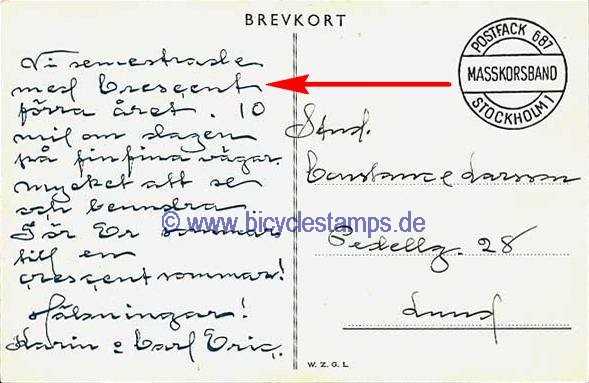 BREVKORT
POSTFACK 687
MASSKORSBAND
STOCKHOLM 1
Vi semestrade
med Crescent
förra året. 10
mil om dagen
på finfina vägar.
mycket att se
och beundra
Gör Er sommar
till en
crescentsommar!
Hälsningar!
Karin o Carl Eric.
Stud.
Constance Larsson
Pedellg. 28
Lund
© www.bicyclestamps.de
W. Z. G. L.